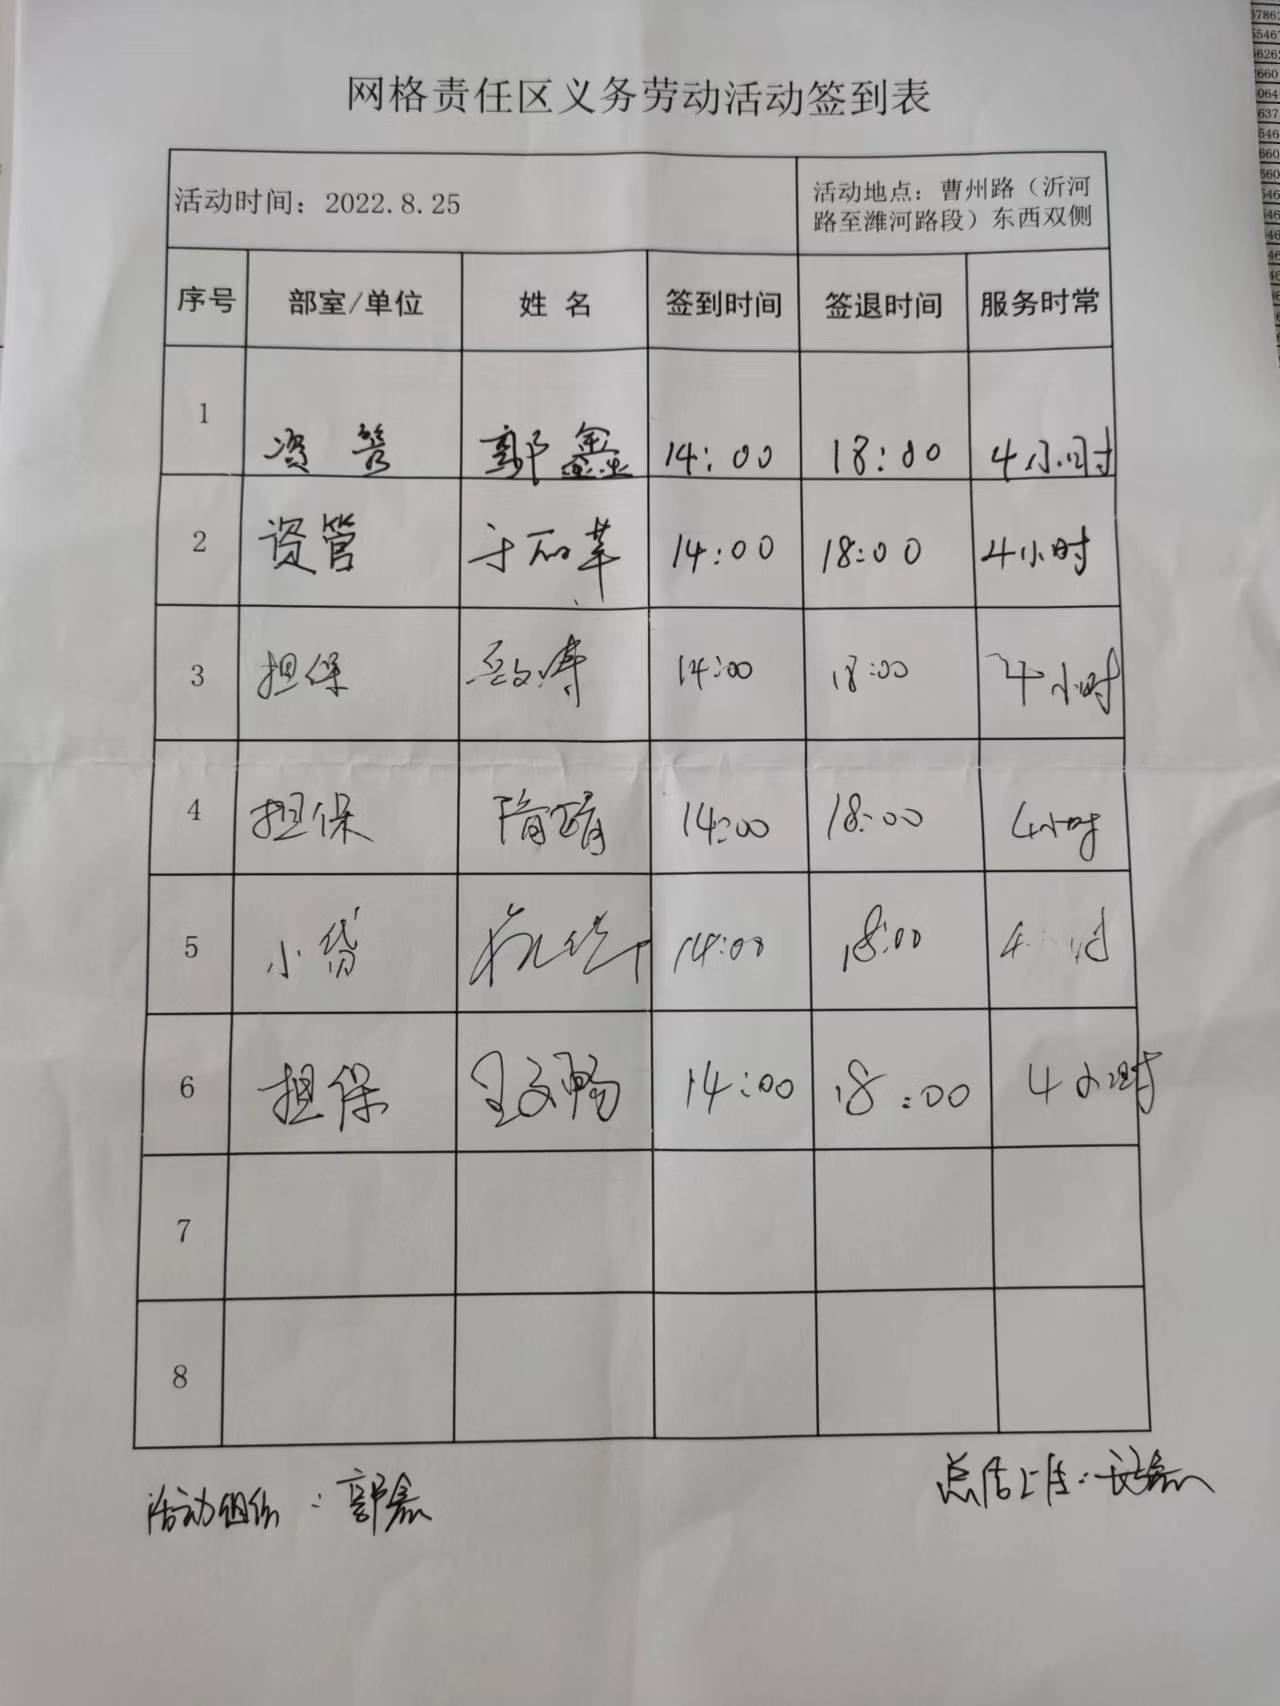 网格责任区义务劳动活动签到表
活动时间：2022.8.25
活动地点：曹州路（沂河
路至潍河路段）东西双侧
序号 部室/单位 姓 名 签到时间 签退时间 服务时常
1 资管 郭鑫 14:00 18:00 4小时
2 资管 14:00 18:00 4小时
3 担保 14:00 18:00 4小时
4 担保 隋晴 14:00 18:00 4小时
5 小贷 14:00 18:00 4 时
6 担保 王文畅 14:00 18:00 4小时
7
8
活动组织：郭鑫